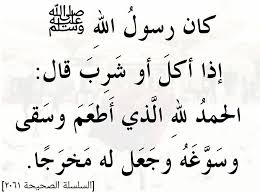 كان رسولُ اللهِ ﷺ
إذا أكلَ أو شَرِبَ قال:
الحمدُ للهِ الَّذي أَطعَمَ وَسَقى
وسَوَّغَهُ وجَعَل له مَخرَجًا.
[السلسلة الصحيحة ٢٠٦١]